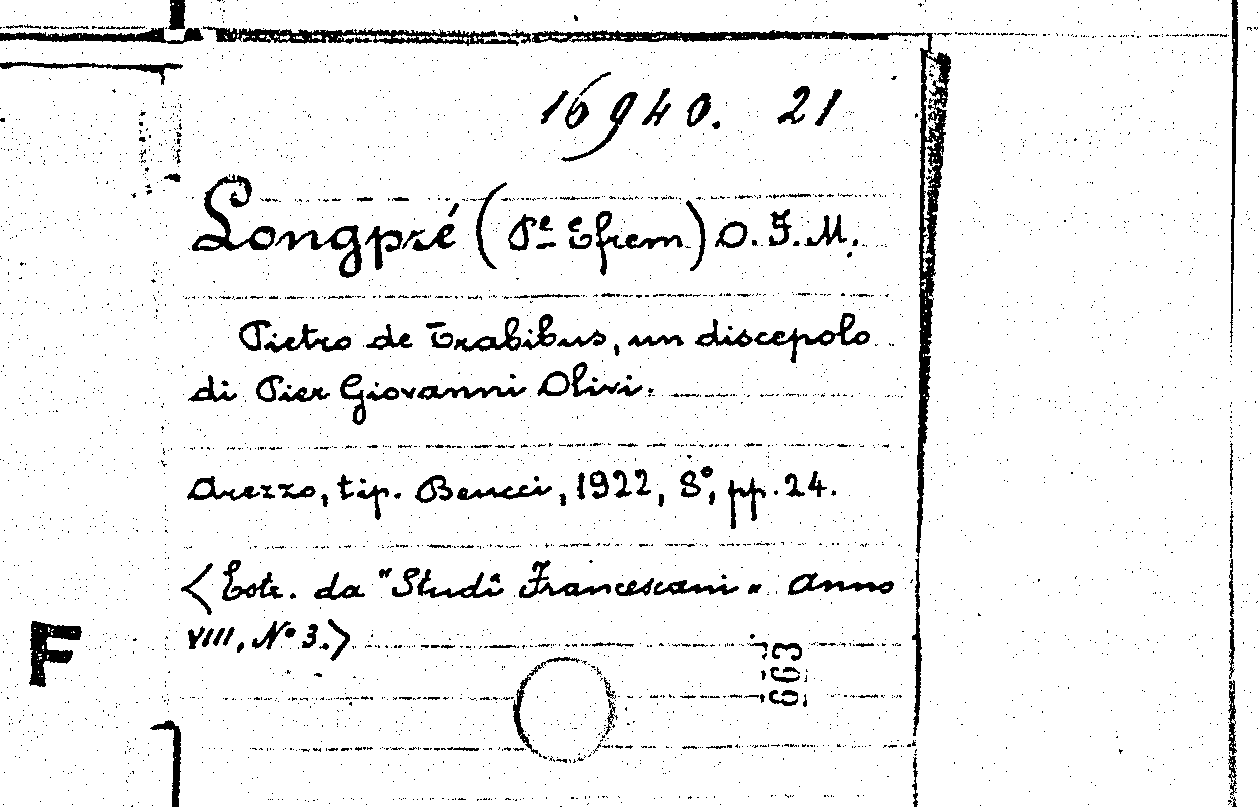 16940. 21
Longpré (Pe Efrem) O.F.M.
Pietro de Trabibus, un discepolo
di Pier Giovanni Olivi.
Arezzo, tip. Beucci, 1922, 8°, pp. 24.
<Estr. da "Studî Francescani" Anno
VIII, N° 3.>
F
663